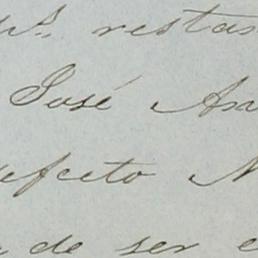 restan
José An
efecto N
de ser e